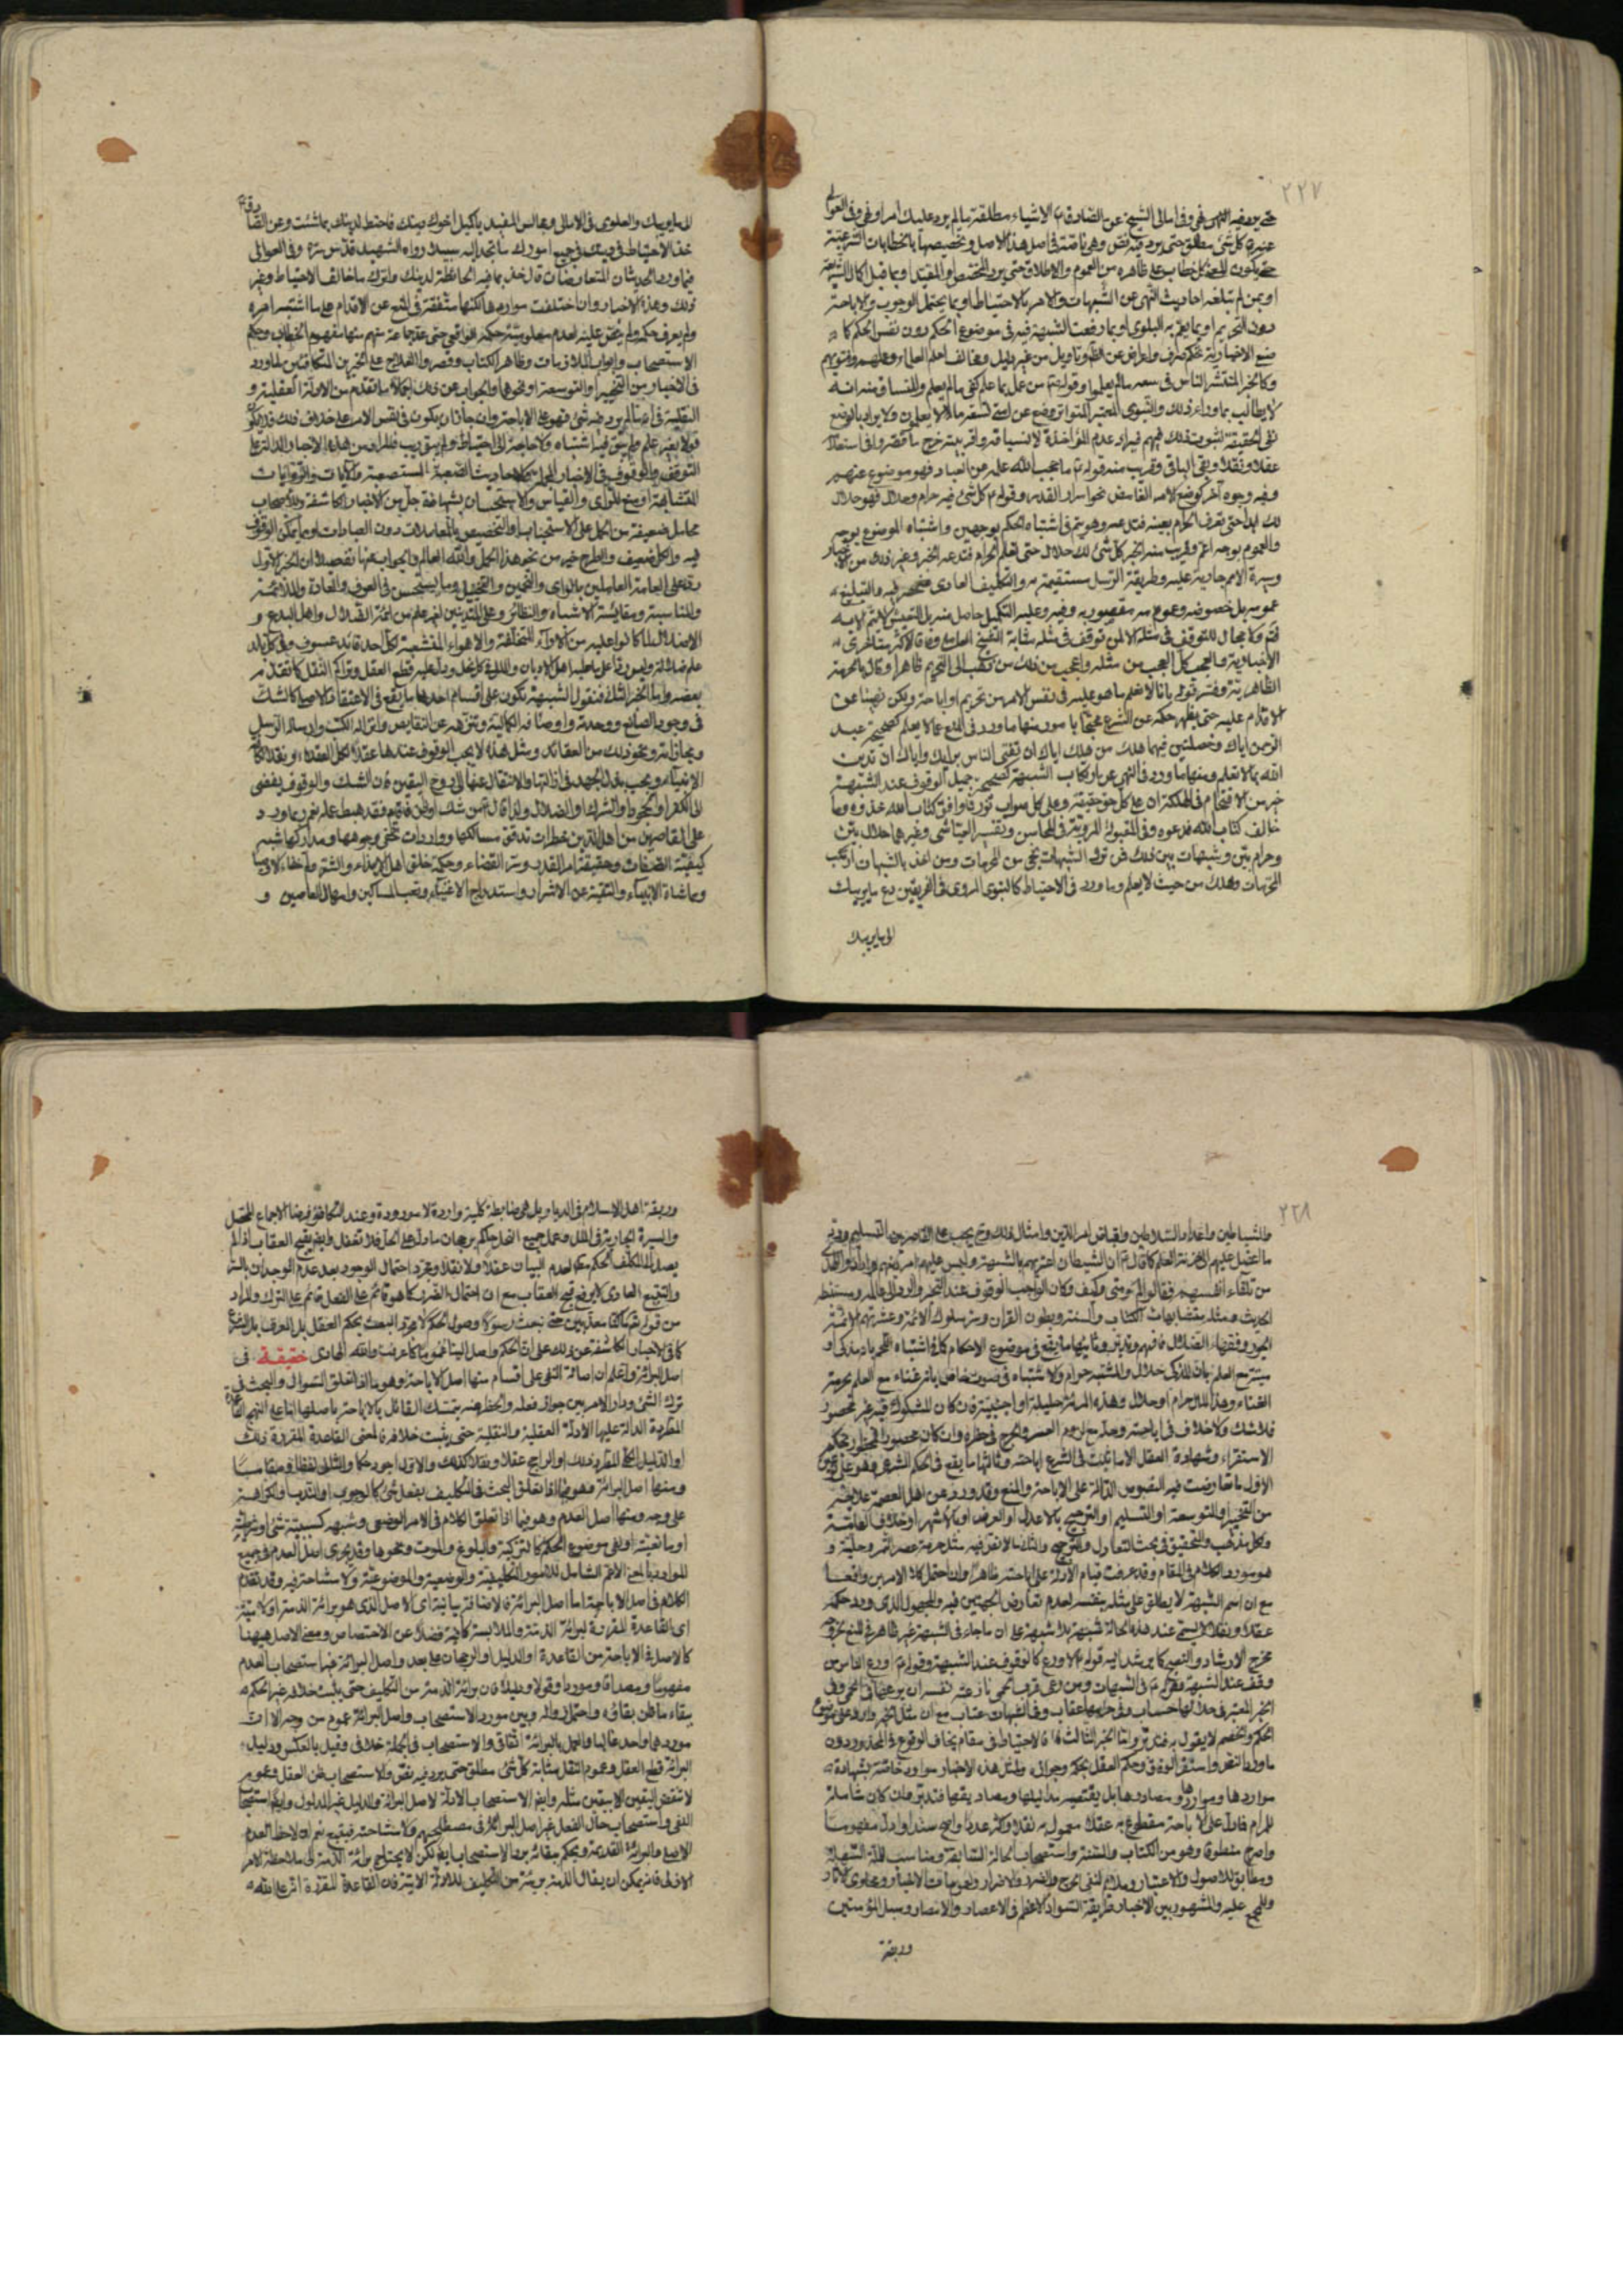 ٢٢٧
حتى يرد فيه النهى وفى امالى الشيخ عن الصادق الاشياء مطلقة مالم يرد عليك امر او نهى وفى العوالى
عنه كل شئ مطلق حتى يرد فيه نص وهى ناصة فى اصل هذا الاصل وتخصيصها بالخطابات الشرعية
على ظاهره من العموم والاطلاق حتى يرد المخصص او المقيد او بما قبل اكمال الشريعة
او بمن لم تبلغه احاديث النهى عن الشبهات والامر بالاحتياط او بما يحتمل الوجوب والاباحة
دون التحريم او بما يعم به البلوى او بما رفعت الشبهة فيه فى موضوع الحكم دون نفس الحكم كما
من غير دليل ومخالف
وكالخبر المنتشر الناس فى سعة مالم يعلموا وقوله من عمل بما علم كفى مالم يعلم والمنساق منه انه
لا يطالب بما وراء ذلك والنبوى المعتبر المتواتر وضع عن امتى تسعة مالا يعلمون ولا يراد بالوضع
نفى الحقيقة لثبوت ذلك
عقلا ونقلا وبقى الباقى وقريب منه قوله ما حجب الله علمه عن العباد فهو موضوع عنهم
وفيه وجوه آخر كوضع الامر الغامض نحو اسرار القدر وقوله كل شئ فيه حرام وحلال فهو حلال
لك ابدا حتى تعرف الحرام بعينه فتدعه وهو يتم فى اشتباه الحكم بوجهين واشتباه الموضوع بوجه
والعموم بوجه اعم وقريب منه الخبر كل شئ لك حلال حتى تعلم الحرام فتدعه الخبر وغير ذلك من الاخبار
وسيرة الامم جارية عليه وطريقة الرسل مستقيمة به والتكليف العادى منحصر فيه والتبليغ
فتم ولا مجال للتوقف فى مثله الا لمن توقف فى مثله
الاخبارية والعجب كل العجب من مثله واعجب من ذلك من ذهب الى التحريم ظاهرا وقال بالحرمة
الظاهرية وفسر قوله بانا لا نعلم ما هو عليه فى نفس الامر من تحريم او اباحة ولكن نهينا عن
الاقدام عليه حتى يظهر حكمه عن الشرع محتجا بامور منها ما ورد فى المنع عما لا يعلم كصحيحة عبد
الرحمن اياك وخصلتين فيهما هلك من هلك اياك ان تفتى الناس برايك واياك ان تدين
الله بما لا تعلم ومنها ما ورد فى النهى عن ارتكاب الشبهة كصحيحة جميل الوقوف عند الشبهة
خير من الاقتحام فى الهلكة ان على كل حق حقيقة وعلى كل صواب نورا فما وافق كتاب الله فخذوه وما
خالف كتاب الله فدعوه وفى المقبولة المروية فى المحاسن وتفسير العياشى وغيرهما حلال بين
وحرام بين وشبهات بين ذلك فمن ترك الشبهات نجى من المحرمات ومن اخذ بالشبهات ارتكب
المحرمات وهلك من حيث لا يعلم وما ورد فى الاحتياط كالنبوى المروى فى الفريقين دع ما يريبك
الى ما لا يريبك
الى ما لا يريبك والعلوى فى الامالى ومجالس المفيد يا كميل اخوك دينك فاحتط لدينك بما شئت وعن الصادق
خذ الاحتياط فى دينك فى جميع امورك ما تجد اليه سبيلا رواه الشهيد قدس سره وفى العوالى
فيما ورد الحديثان المتعارضان قال خذ بما فيه الحائطة لدينك واترك ما خالف الاحتياط وغير
ذلك وهذه الاخبار وان اختلفت مواردها لكنها متفقة فى المنع عن الاقدام على ما اشتبه امره
الاستصحاب وابواب الملازمات وظاهر الكتاب وقصر العلاج على الخبرين المتكافئين بما ورد
فى الاخبار من التخيير او التوسعة او نحوهما والجواب عن ذلك اجمالا ما تقدم من الادلة العقلية و
النقلية فى ان مالم يرد فيه شئ فهو على الاباحة وان جاز ان يكون فى نفس الامر على خلاف ذلك فلا يكون
قولا بغير علم ولم يبق فيه اشتباه ولا حاجة الى احتياط ولم يبق ريب فالمراد من هذه الاخبار الدالة على
المتشابهة او منع للراى والقياس والاستحسان بشهادة جل من الاخبار الكاشفة وللاصحاب
محامل ضعيفة من الحمل على الاستحباب او التخصيص بالمعاملات دون العبادات او بما يمكن الوقوف
فيه والكل ضعيف والطرح خير من نحو هذا الحمل والله العالم والجواب عنها تفصيلا ان الخبر الاول
رد على العامة العاملين بالراى والتخمين والتخييل وما يستحسن فى العرف والعادة والملائمة
والمناسبة ومقايسة الاشباه والنظائر وعلى المتدينين لغير علم من ائمة الضلال واهل البدع و
بعضه واما الخبر الثانى فنقول الشبهة تكون على اقسام احدها ما يقع فى الاعتقاد الاصلى كالشك
فى وجود الصانع ووحدته واوصافه الكمالية وتنزهه عن النقايص وانزاله الكتب وارساله الرسل
ومجازاته ونحو ذلك من العقائد ومثل هذه لا يجب الوقوف عندها
الانبياء ويجب بذل الجهد فى ازالتها والانتقال عنها الى روح اليقين فان الشك والوقوف يفضى
الى الكفر والجحود والشرك والضلال ولذا قال من شك او ظن فاقام فقد هبط عمله نعم ربما ورد
على القاصرين من اهل الدين خطرات تدقق مسالكها وواردات تخفى وجوهها ومداركها شبه
كيفية الصفات وحقيقة امر القدر وسر القضاء وحكمة خلق اهل الايذاء والشر واخفاء الاوصياء
ومماشاة الانبياء والتقية عن الاشرار واستدراج الاغنياء وتعب المساكين وامهال العاصين و
٢٢٨
والشياطين واعداء السلاطين وانقباض امر الدين وامثال ذلك وح يجب على القاصرين التسليم ورد
ما اعضل عليهم الى خزنة العلم كما قال ان الشيطان اغتربهم بالشبهة ولبس عليهم امر دينهم وارادوا الهدى
من تلقاء انفسهم فقالوا لم ومتى وكيف وكان الواجب الوقوف عند التحير والرد الى عالمه ومستنبطه
الحديث ومثله متشابهات الكتاب والسنة وبطون القرآن
فافهم وتدبر وثانيها ما يقع فى موضوع الاحكام كما فى اشتباه اللحم بانه مذكى او
ميتة مع العلم بان المذكى حلال والمشتبه حرام والاشتباه فى صوت خاص بانه غناء مع العلم بحرمة
الغناء وهذا المال حرام او حلال وهذه المرئة حليلة او اجنبية فان كان المشكوك فيه غير محصور
فلا شك ولا خلاف فى اباحته وحله مع لزوم العسر والحرج فى حظره وان كان محصورا
الاستقراء وشهادة العقل الا ما ثبت فى الشرع اباحته وثالثها ما يقع فى الحكم الشرعى وهو على
الاول ما تعارضت فيه النصوص الدالة على الاباحة والمنع وقد ورد عن اهل العصمة علاجه
من التخيير والتوسعة او التسليم او الترجيح بالاعدل او العرض او بالاشهر او خلاف العامة
وكل مذهب والتحقيق فى بحث التعادل والترجيح والثانى مالا نص فيه مثل حرمة عصير التمر وحليته و
هو مورد الكلام فى المقام وقد عرفت قيام الادلة على اباحته ظاهرا وان احتمل كلا الامرين واقعا
مع ان اسم الشبهة لا يطلق على مثله بنفسه لعدم تعارض الجهتين فيه والمجهول الذى ورد حكمه
عقلا ونقلا لا يسمى عند هذه الحالة شبهة بلا شبهة على ان ما جاء فى الشبهة غير ظاهر فى المنع
مخرج الارشاد والنصح كما يرشد اليه قوله لا ورع كالوقوف عند الشبهة وقوله اورع الناس من
وقف عند الشبهة
الخبر المعتبر فى حلالها حساب وفى حرامها عقاب وفى الشبهات عتاب مع ان مثل الخبر وارد على
الحكم والخصم لا يقول به فتدبر واما الخبر الثالث فالاحتياط فى مقام يخاف الوقوع فى المحذور دون
ماورد النص
مواردها ومواردها ومصادرها بل يقتصر مداليلها ومصاديقها فتدبر وان كان شاملة
للمرام فما دل على الاباحة مقطوع به عقلا معمول به نقلا واكثر عددا واصح سندا وادل مفهوما
واصرح منطوقا وهو من الكتاب والسنة واستصحاب الحالة السابقة ومناسب للملة السهلة
ومطابق للاصول والاعتبار وملائم لنفى الحرج والضرر والاضرار
والمجمع عليه والمشهور بين الاخبار وطريقة السواد الاعظم فى الاعصار والامصار وسبل المؤمنين
وديقة
وديقة اهل الاسلام فى الديار وبل هى ضابطة كلية واردة لا مورودة وعند التكافؤ فرضا الاجماع المحصل
والسيرة الجارية فى الملل وعمل جميع النحل حاكم برجحان مادل على الحل فلا تغفل وايضا يقبح العقاب اذا لم
يصل الى المكلف الحكم لعدم البيان عقلا ولا نقلا ومجرد احتمال الوجود بعد عدم الوجدان
والتتبع العادى لا يرفع قبح العقاب مع ان احتمال الضرر كما هو قائم على الفعل قائم على الترك والمراد
من قوله تع ما كنا معذبين حتى نبعث رسولا وصول الحكم لا مجرد البعث بحكم العقل بل العرف بل الشرع
كما فى الاخبار الكاشفة عن ذلك على ان الحكم واصل الينا عموما كما عرفت والله الهادى حقيقة فى
اصل البرائة واعلم ان اصالة النفى على اقسام منها اصل الاباحة وهو ما اذا تعلق السؤال والبحث فى
ترك الشئ ودار الامر بين جواز فعله والحظر منه يتمسك القائل بالاباحة باصلها
المطردة الدالة عليها الادلة العقلية والنقلية حتى يثبت خلافه فالمعنى القاعدة المقررة ذلك
او الدليل الكلى المطرد ذلك او الراجح عقلا ونقلا كذلك والاول اجود حكما والثانى لفظا ومقاما
ومنها اصل البرائة وهو فيما اذا تعلق البحث فى التكليف بفعل شئ كالوجوب او الندب والكراهة
على وجه ومنها اصل العدم وهو فيما اذا تعلق الكلام فى الامر الوضعى وشبهه كسببية شئ او شرطيته
او مانعيته او فى موضوع الحكم كالتزكية والبلوغ والموت ونحوها وقد يجرى اصل العدم فى جميع
الموارد بالمعنى الاعم الشامل للامور التكليفية والوضعية والموضوعية ولا مشاحة فيه وقد تقدم
الكلام فى اصل الاباحة اما اصل البرائة فالاضافة بيانية اى الاصل الذى هو برائة الذمة او لامية
اى القاعدة المقررة لبرائة الذمة والملابسة كافية فضلا عن الاختصاص ومعنى الاصل هيهنا
كالاصل فى الاباحة من القاعدة او الدليل او الرجحان على بعد واصل البرائة غير استصحاب العدم
مفهوما ومصداقا وموردا وقولا ودليلا فان برائة الذمة من التكليف حتى يثبت خلافه غير الحكم
ببقاء ما ظن بقاؤه واحتمل زواله وبين مورد الاستصحاب واصل البرائة عموم من وجه الا ان
موردهما واحد غالبا والعمل بالبرائة اتفاقى والاستصحاب فى الجملة خلافى وقيل بالعكس ودليل
البرائة قطع العقل وعموم النقل بمثابة كل شئ مطلق حتى يرد فيه نص والاستصحاب ظن العقل وعموم
لا تنقض اليقين الا بيقين مثله وايضا الاستصحاب الادلة لاصل البرائة والدليل غير المدلول
النفى واستصحاب حال الفعل غير اصل البرائة فى مصطلحهم ولا مشاحة فيه نعم ان لاحظ العدم
الاصلى والبرائة القديمة ويحكم ببقائه بالاستصحاب لكن لا يحتاج برائة الذمة الى ملاحظة الامر
الاول فانه يمكن ان يقال الذمة بريئة من التكليف للادلة الاتية فان القاعدة المقررة